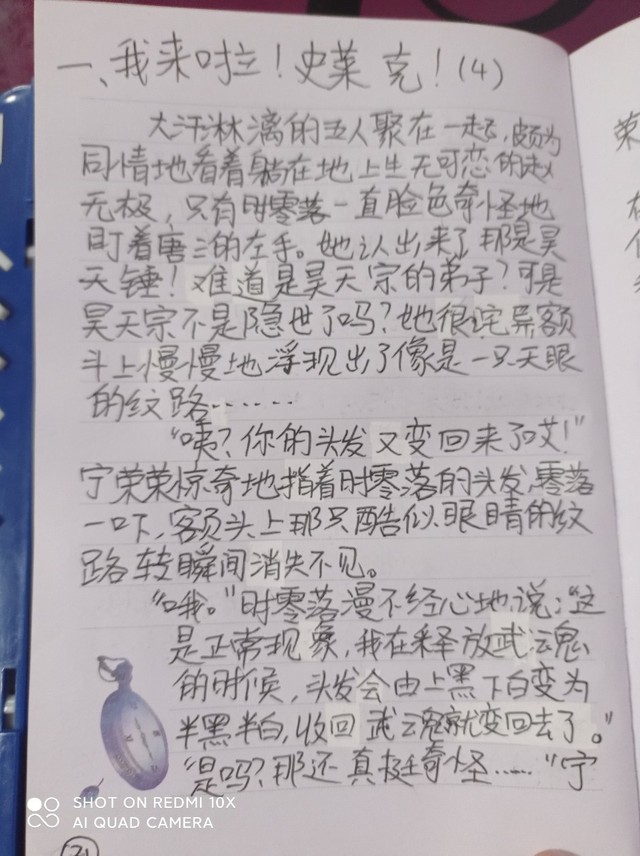 一、我来啦！史莱克！(4)
大汗淋漓的五人聚在一起，颇为
同情地看着躺在地上生无可恋的赵
无极，只有时零落一直脸色奇怪地
盯着唐三的左手。她认出来了那是昊
天锤！难道是昊天宗的弟子？可是
昊天宗不是隐世了吗？她很诧异额
头上慢慢地浮现出了像是一只天眼
的纹路……
“咦？你的头发又变回来了哎！”
宁荣荣惊奇地指着时零落的头发，零落
一吓，额头上那只酷似眼睛的纹
路转瞬间消失不见。
“哦。”时零落漫不经心地说：“这
是正常现象，我在释放武魂
的时候，头发会由上黑下白变为
半黑半白，收回武魂就变回去了。”
“是吗？那还真挺奇怪……”宁
荣
SHOT ON REDMI 10X
AI QUAD CAMERA